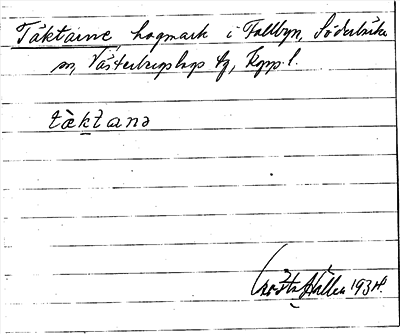 Täktarne hagmark i Fallbyn, Söderbärke
sn, Västerbergslags fg, Kopp. l.
täktanə
Gösta Själlin 1934.